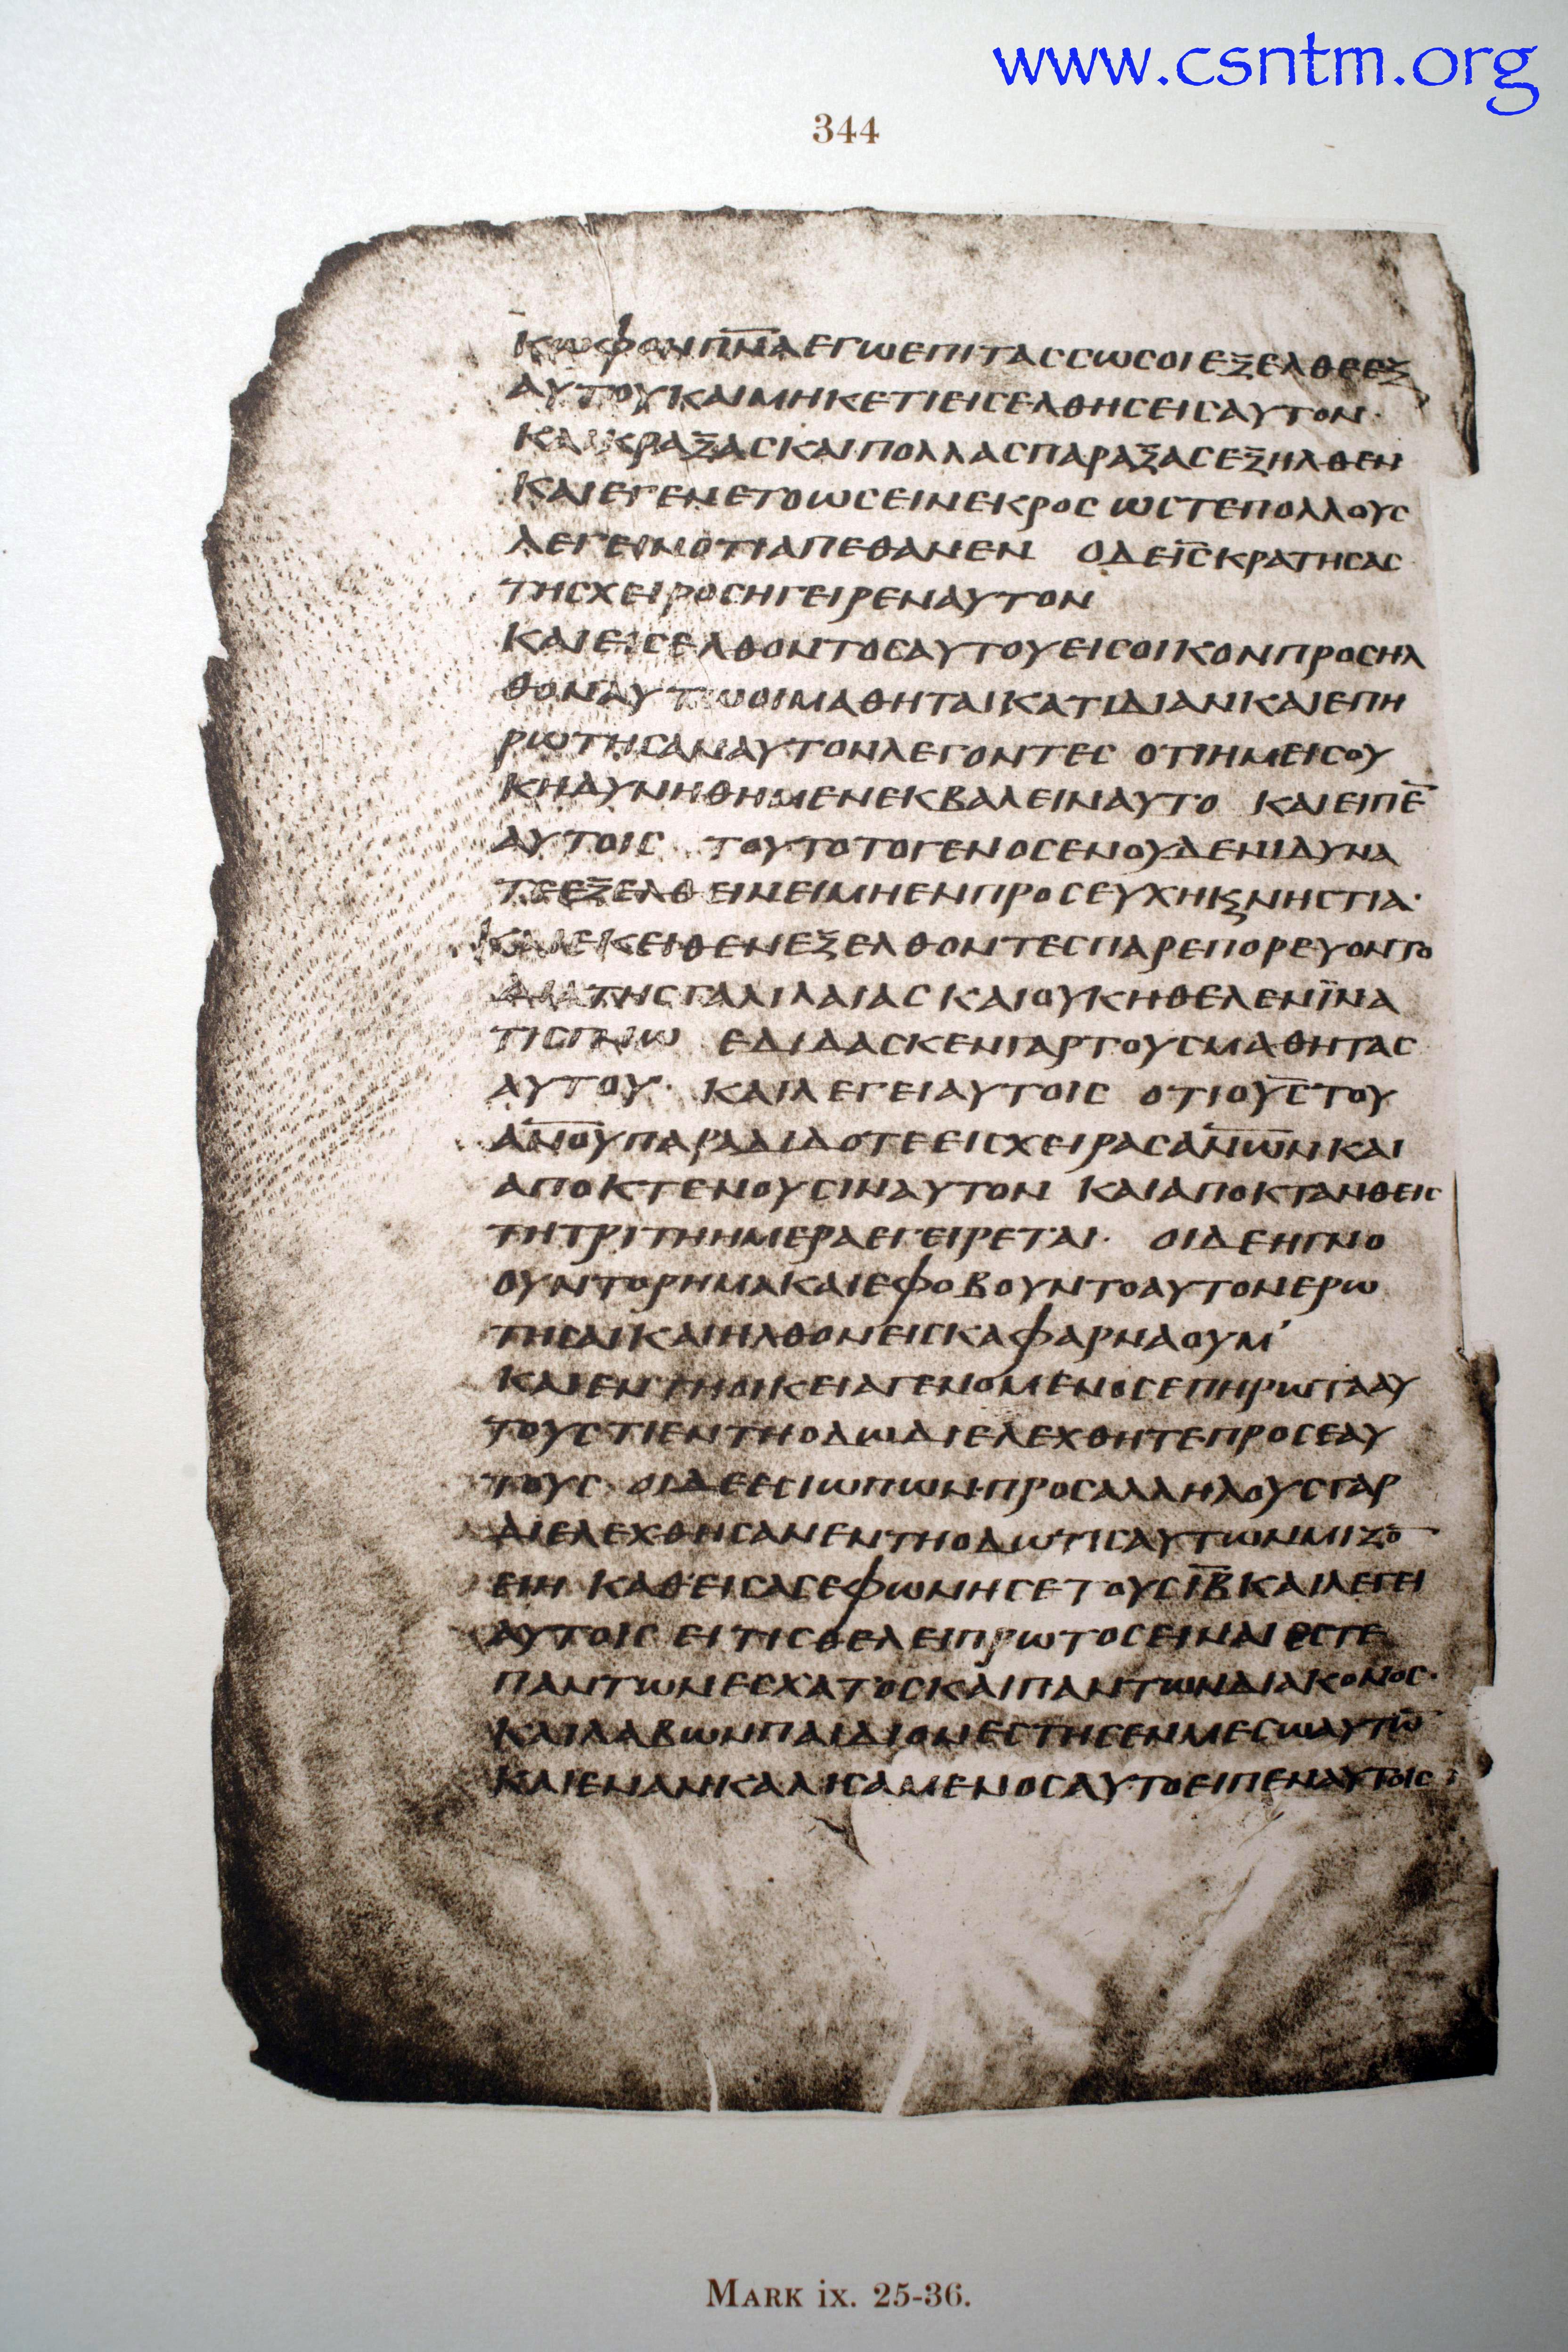 www.csntm.org
344
ΚΩΦΟΝΠ̅Ν̅Α̅ΕΓΩΕΠΙΤΑССΩСΟΙΕΞΕΛΘΕΕΞ
ΑΥΤΟΥΚΑΙΜΗΚΕΤΙΕΙСΕΛΘΗСΕΙСΑΥΤΟΝ·
ΚΑΙΚΡΑΞΑСΚΑΙΠΟΛΛΑСΠΑΡΑΞΑСΕΞΗΛΘΕΝ
ΚΑΙΕΓΕΝΕΤΟΩСΕΙΝΕΚΡΟС ΩСΤΕΠΟΛΛΟΥС
ΛΕΓΕΙΝΟΤΙΑΠΕΘΑΝΕΝ ΟΔΕΙ̅С̅ΚΡΑΤΗСΑС
ΤΗСΧΕΙΡΟСΗΓΕΙΡΕΝΑΥΤΟΝ
ΚΑΙΕΙСΕΛΘΟΝΤΟСΑΥΤΟΥΕΙСΟΙΚΟΝΠΡΟСΗΛ
ΘΟΝΑΥΤΩΟΙΜΑΘΗΤΑΙΚΑΤΙΔΙΑΝΚΑΙΕΠΗ
ΡΩΤΗСΑΝΑΥΤΟΝΛΕΓΟΝΤΕС ΟΤΙΗΜΕΙСΟΥ
ΚΗΔΥΝΗΘΗΜΕΝΕΚΒΑΛΕΙΝΑΥΤΟ ΚΑΙΕΙΠΕ̅
ΑΥΤΟΙС ΤΟΥΤΟΤΟΓΕΝΟСΕΝΟΥΔΕΝΙΔΥΝΑ
ΤΕΕΞΕΛΘΕΙΝΕΙΜΗΕΝΠΡΟСΕΥΧΗϗΝΗСΤΙΑ·
ΚΑΙΕΚΕΙΘΕΝΕΞΕΛΘΟΝΤΕСΠΑΡΕΠΟΡΕΥΟΝΤΟ
ΔΙΑΤΗСΓΑΛΙΛΑΙΑС ΚΑΙΟΥΚΗΘΕΛΕΝΪΝΑ
ΤΙСΓΝΩ ΕΔΙΔΑСΚΕΝΓΑΡΤΟΥСΜΑΘΗΤΑС
ΑΥΤΟΥ· ΚΑΙΛΕΓΕΙΑΥΤΟΙС ΟΤΙΟΥ̅С̅ΤΟΥ
Α̅Ν̅Ο̅Υ̅ΠΑΡΑΔΙΔΟΤΕΕΙСΧΕΙΡΑСΑ̅Ν̅Ω̅Ν̅ΚΑΙ
ΑΠΟΚΤΕΝΟΥСΙΝΑΥΤΟΝ ΚΑΙΑΠΟΚΤΑΝΘΕΙС
ΤΗΤΡΙΤΗΗΜΕΡΑΕΓΕΙΡΕΤΑΙ· ΟΙΔΕΗΓΝΟ
ΟΥΝΤΟΡΗΜΑΚΑΙΕΦΟΒΟΥΝΤΟΑΥΤΟΝΕΡΩ
ΤΗСΑΙΚΑΙΗΛΘΟΝΕΙСΚΑΦΑΡΝΑΟΥΜ'
ΚΑΙΕΝΤΗΟΙΚΕΙΑΓΕΝΟΜΕΝΟСΕΠΗΡΩΤΑΑΥ
ΤΟΥС ΤΙΕΝΤΗΟΔΩΔΙΕΛΕΧΘΗΤΕΠΡΟСΕΑΥ
ΤΟΥС ΟΙΔΕΕСΙΩΠΩΝ·ΠΡΟСΑΛΛΗΛΟΥСΓΑΡ
ΔΙΕΛΕΧΘΗСΑΝΕΝΤΗΟΔΩΤΙСΑΥΤΩΝΜΙΖΟ̅
ΕΙΗ ΚΑΘΕΙСΑСΕΦΩΝΗСΕΤΟΥСΙ̅Β̅ΚΑΙΛΕΓΕΙ
ΑΥΤΟΙС ΕΙΤΙСΘΕΛΕΙΠΡΩΤΟСΕΙΝΑΙΕСΤΕ
ΠΑΝΤΩΝΕСΧΑΤΟСΚΑΙΠΑΝΤΩΝΔΙΑΚΟΝΟС·
ΚΑΙΛΑΒΩΝΠΑΙΔΙΟΝΕСΤΗСΕΝΜΕСΩΑΥΤΩ̅
ΚΑΙΕΝΑΝΚΑΛΗСΑΜΕΝΟСΑΥΤΟΕΙΠΕΝΑΥΤΟΙС·
MARK ix. 25-36.